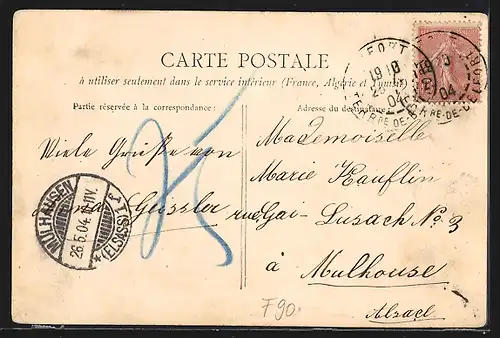 CARTE POSTALE
à utiliser seulement dans le service intérieur (France, Algérie et Tunisie)
Partie réservée à la correspondance:
Adresse du destinataire:
Viele Grüße von
Geissler
Mademoiselle
Marie Hauflin
rue Gai-Lusach No 3
à Mulhouse
Alzael
MÜLHAUSEN
26.5.04
(ELSASS) 1
04
F90.